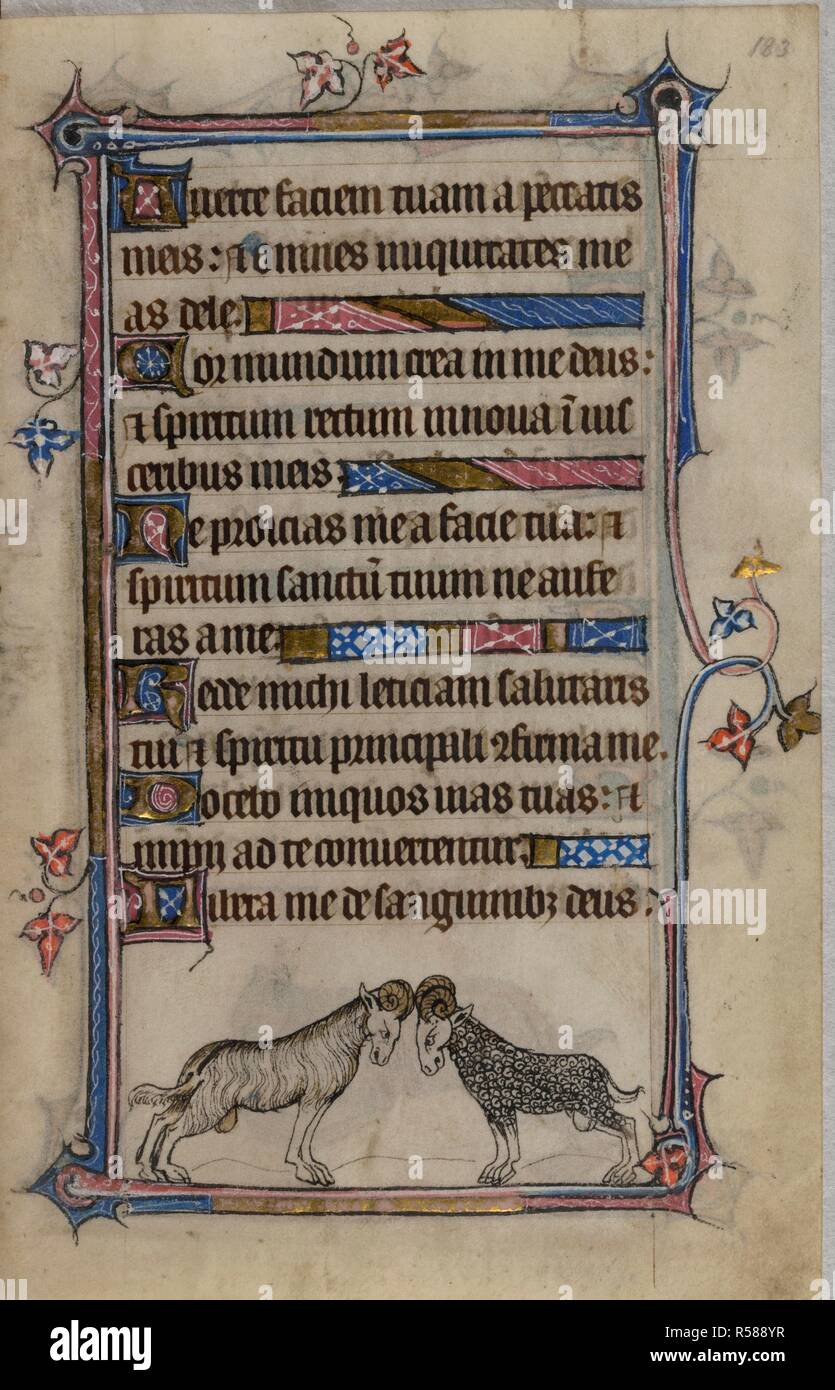 183
Auerte faciem tuam a peccatis
meis: et omnes iniquitates me
as dele.
Cor mundum crea in me deus:
et spiritum rectum innoua ī uis
ceribus meis.
Ne proicias me a facie tua: et
spiritum sanctū tuum ne aufe
ras a me.
Redde michi leticiam salutaris
tui et spiritu principali ꝯfirma me.
Docebo iniquos uias tuas: et
impij ad te conuertentur.
Libera me de sanguinibꝫ deus:
alamy
Image ID: R588YR
www.alamy.com